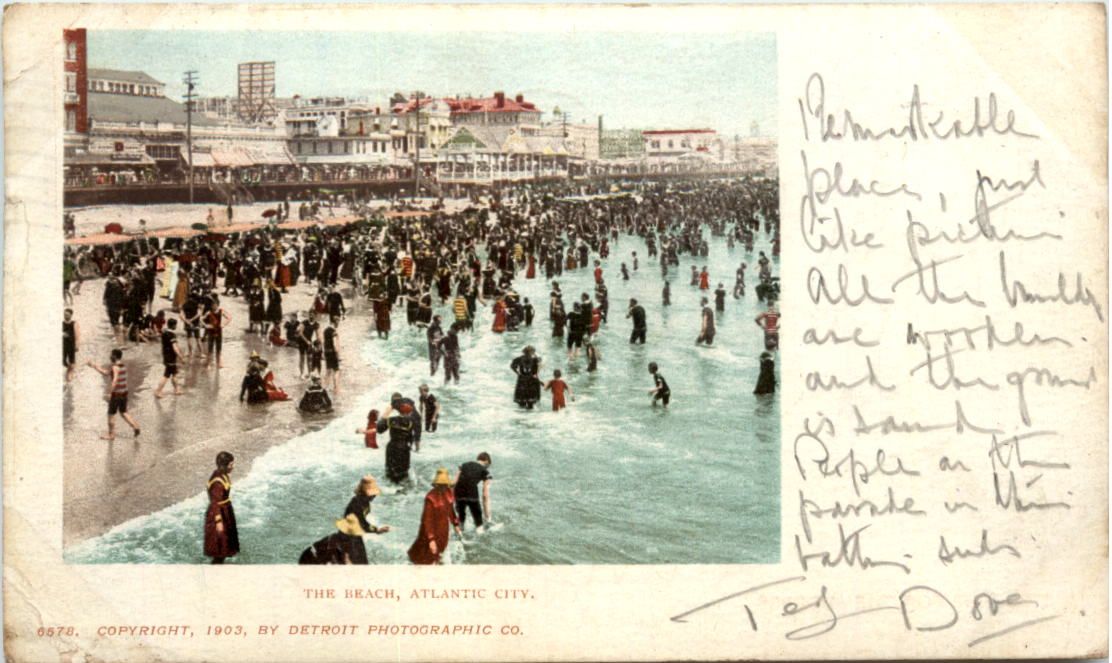 THE BEACH, ATLANTIC CITY.
6578. COPYRIGHT, 1903, BY DETROIT PHOTOGRAPHIC CO.
Remarkable
place, just
like picture
all the
are wooden.
and the ground
is sand
People on the
parade in their
bathing suits.
Ted Dove.